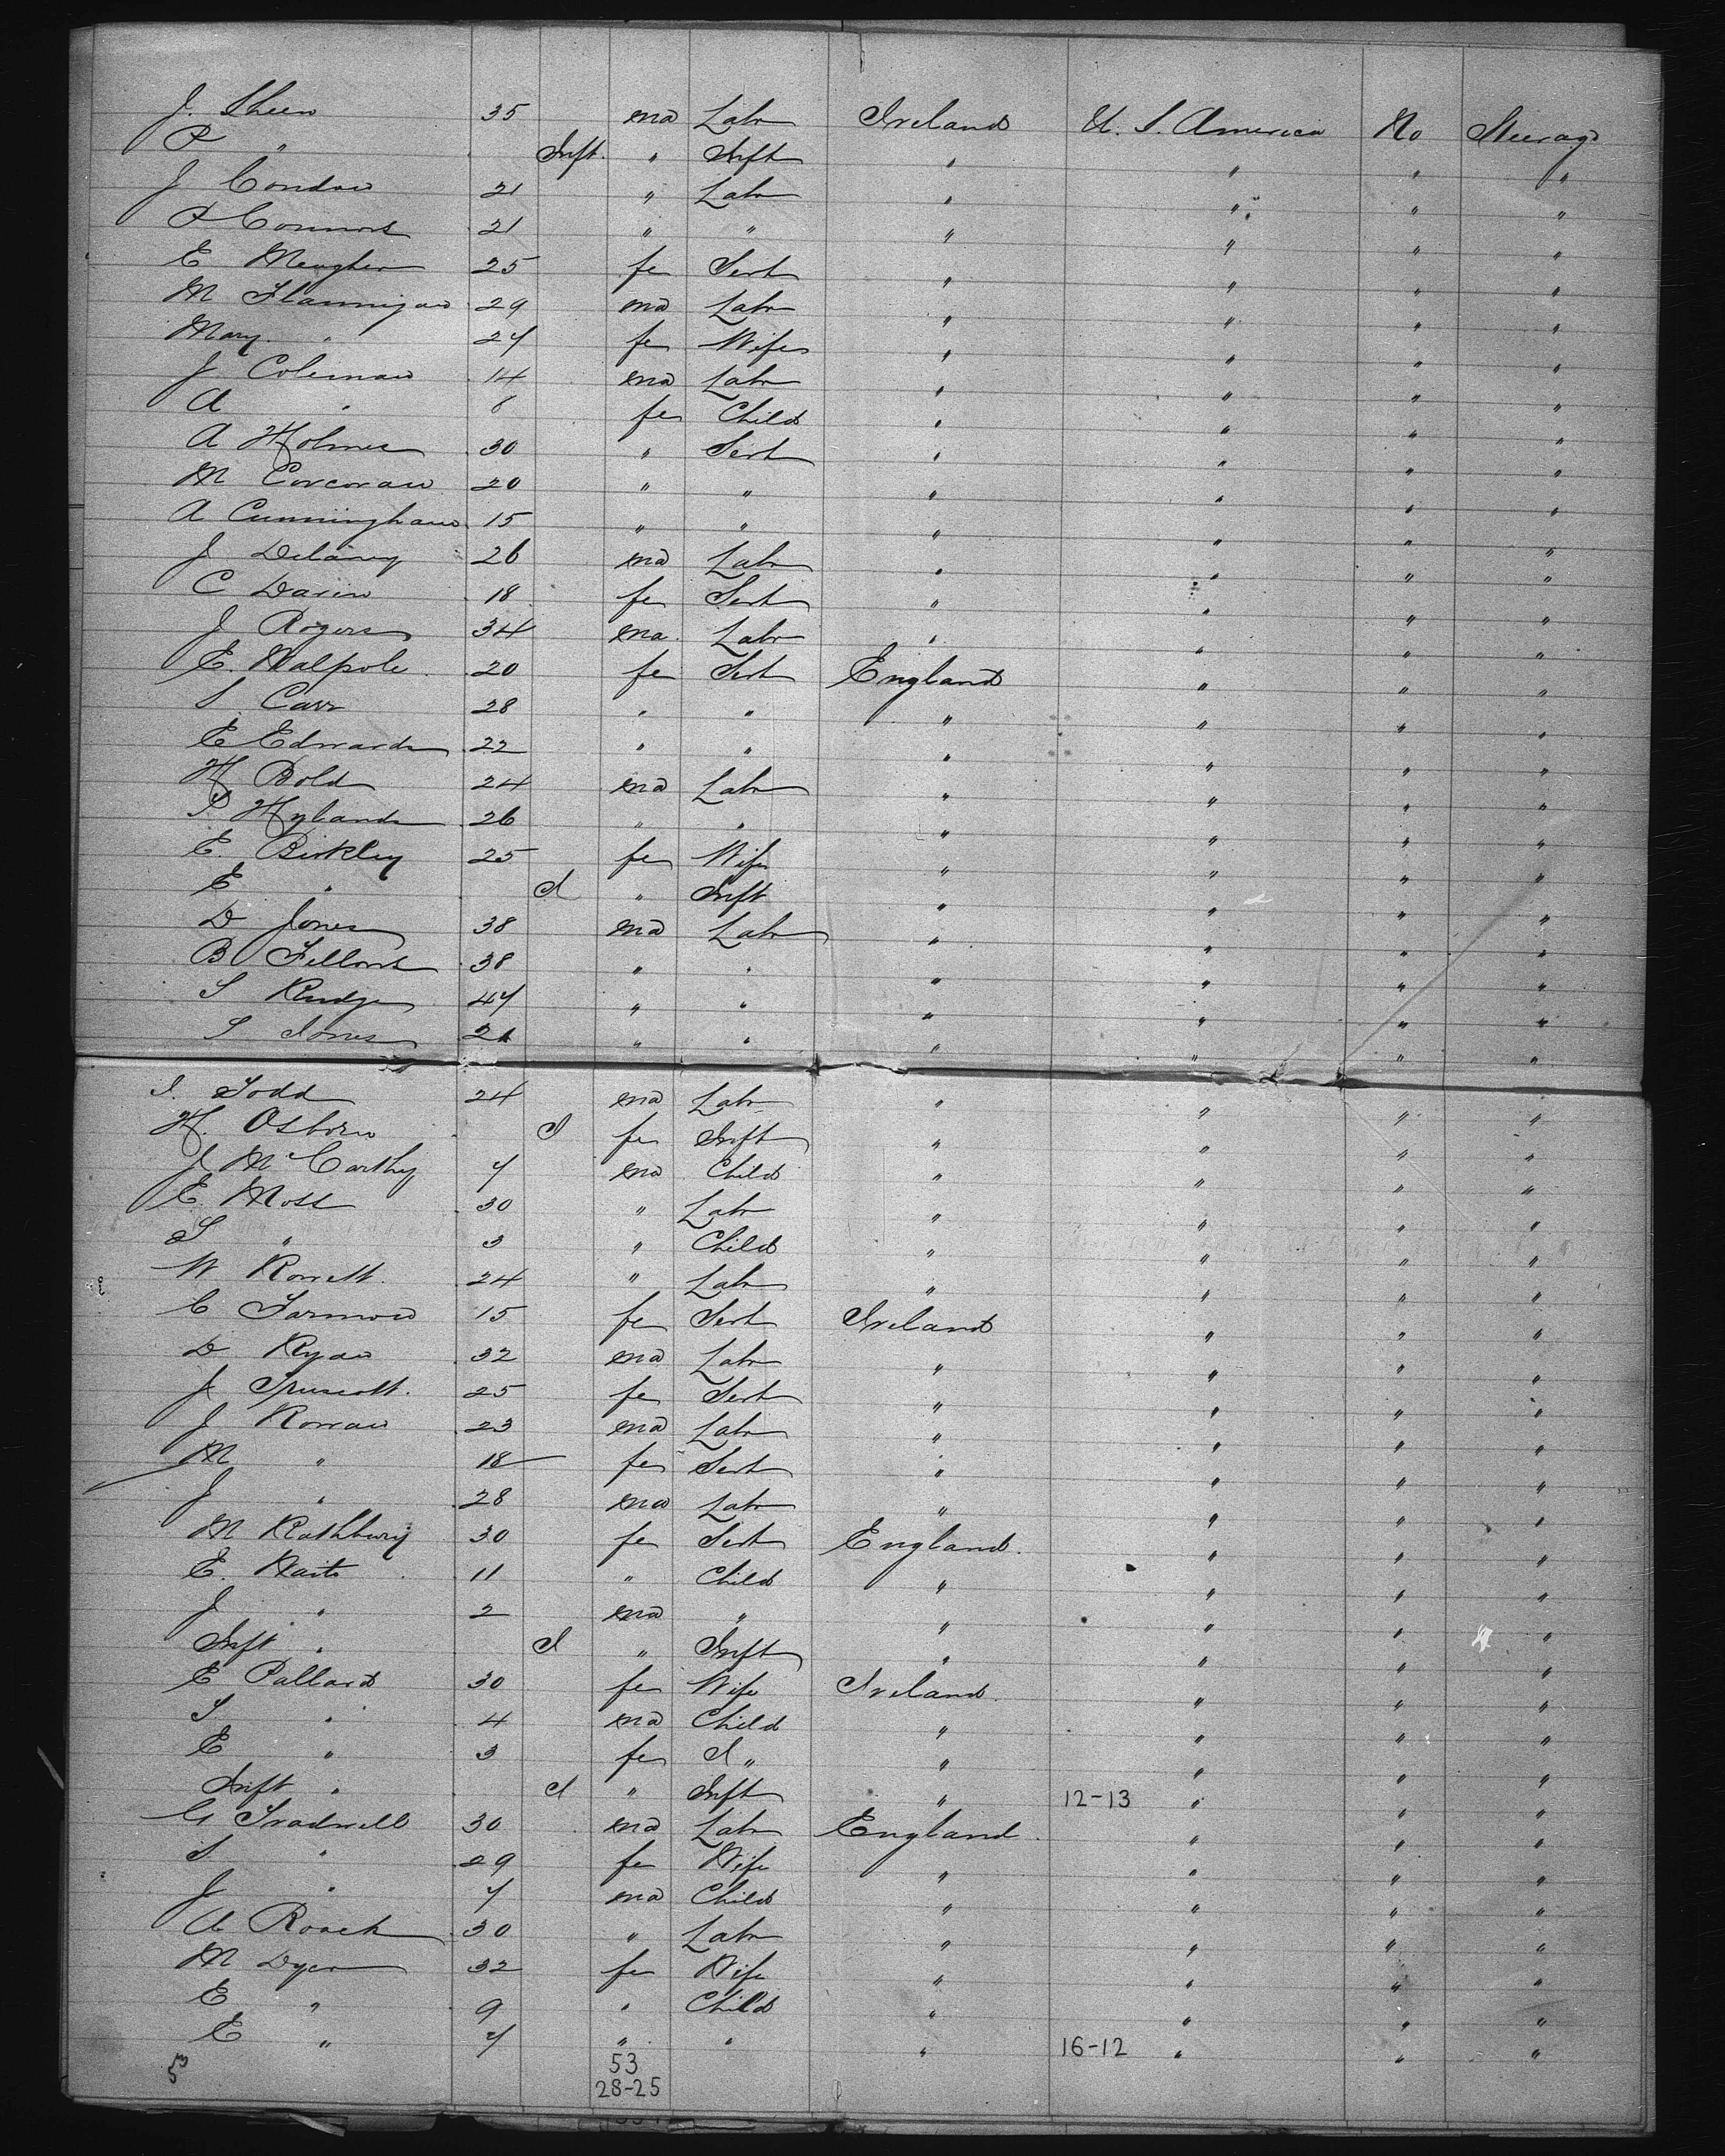 J. Sheen 35 ma Labr Ireland U. S. America No Steerage
P " Inft. " Inft " " " "
J Condon 21 " Labr " " " "
P Connors 21 " " " " " "
E Meagher 25 fe Sert " " " "
M Flannigan 29 ma Labr " " " "
Mary " 24 fe Wife " " " "
J Coleman 14 ma Labr " " " "
A " 8 fe Child " " " "
A Holmes 30 " Sert " " " "
M Corcoran 20 " " " " " "
A Cunningham 15 " " " " " "
J Delaney 26 ma Labr " " " "
C Davin 18 fe Sert " " " "
J Rogers 34 ma Labr " " " "
E. Walpole 20 fe Sert England " " "
S Carr 28 " " " " " "
E Edwards 22 " " " " " "
H Bold 24 ma Labr " " " "
P Hylands 26 " " " " " "
E. Birkley 25 fe Wife " " " "
E " I " Inft " " " "
D Jones 38 ma Labr " " " "
B Fellows 38 " " " " " "
S Rudge 47 " " " " " "
S Jones 21 " " " " " "
I. Todd 24 ma Labr " " " "
H. Osborn I fe Inft " " " "
J McCarthy 7 ma Child " " " "
E. Moss 30 " Labr " " " "
S " 3 " Child " " " "
W Rowett 24 " Labr " " " "
C 15 fe Sert Ireland " " "
D Ryan 32 ma Labr " " " "
J 25 fe Sert " " " "
J Ronan 23 ma Labr " " " "
M " 18 fe Sert " " " "
J " 28 ma Labr " " " "
M Rathbury 30 fe Sert England. " " "
E. Waite 11 " Child " " " "
J " 2 ma " " " " "
Inft " I " Inft " " " "
E Pallard 30 fe Wife Ireland. " " "
S " 4 ma Child " " " "
E " 3 fe d " " " " "
Inft " I " Inft " 12-13 " " "
G Tradwell 30 ma Labr England. " " "
S " 29 fe Wife " " " "
J " 7 ma Child " " " "
A Roach 30 " Labr " " " "
M Dyer 32 fe Wife " " " "
E " 9 " Child " " " "
E " 7 " " " 16-12 " " "
53 53
28-25